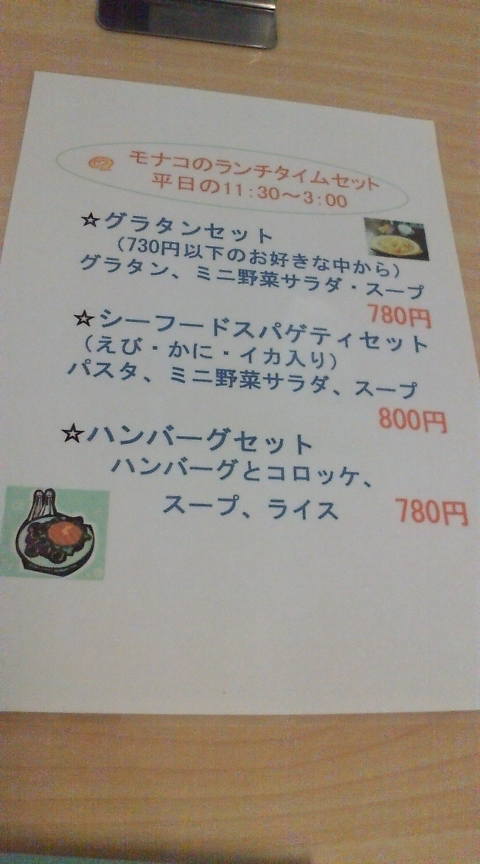 モナコのランチタイムセット
平日の11:30〜3:00
☆グラタンセット
(730円以下のお好きな中から)
グラタン、ミニ野菜サラダ・スープ
780円
☆シーフードスパゲティセット
(えび・かに・イカ入り)
パスタ、ミニ野菜サラダ、スープ
800円
☆ハンバーグセット
ハンバーグとコロッケ、
スープ、ライス 780円